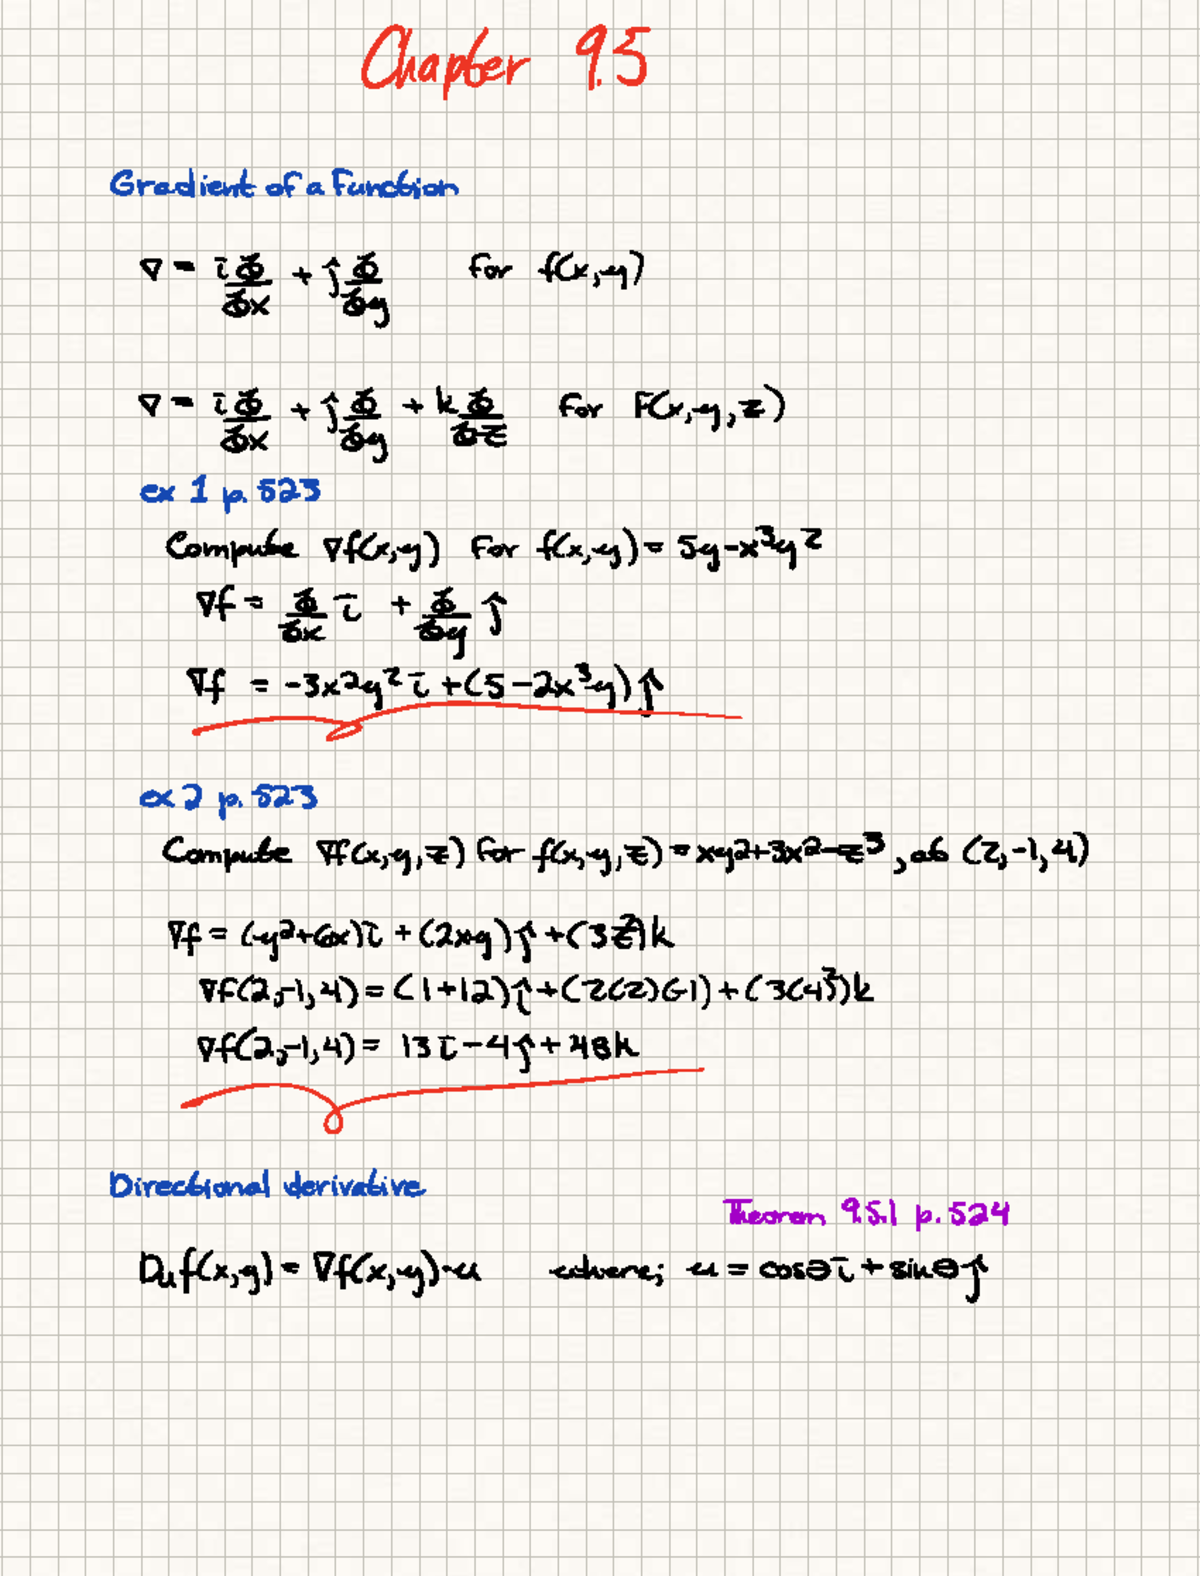 Chapter 9.5
Gradient of a Function
∇ = i ∂/∂x + ĵ ∂/∂y for f(x,y)
∇ = i ∂/∂x + ĵ ∂/∂y + k ∂/∂z for F(x,y,z)
ex 1 p. 523
Compute ∇f(x,y) for f(x,y) = 5y-x³y²
∇f = ∂/∂x i + ∂/∂y ĵ
∇f = -3x²y² i + (5-2x³y) ĵ
ex 2 p. 523
Compute ∇f(x,y,z) for f(x,y,z) = xy²+3x²-z³, at (2,-1,4)
∇f = (y²+6x)i + (2xy)ĵ + (3z²)k
∇f(2,-1,4) = (1+12)ĵ + (2(2)(-1) + (3(4²)k
∇f(2,-1,4) = 13i - 4ĵ + 48k
Directional derivative
Theorem 9.5.1 p. 524
Duf(x,y) = ∇f(x,y)·u where; u = cosθ i + sinθ ĵ